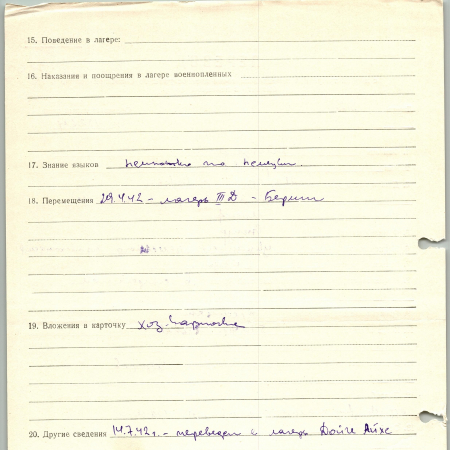 15. Поведение в лагере:
16. Наказания и поощрения в лагере военнопленных
17. Знание языков немножко по немецки.
18. Перемещения 29.4.42 - лагерь III Д - Берлин
19. Вложения в карточку хоз. карточка
20. Другие сведения 14.7.42 г. - переведен в лагерь Дойче Айхе